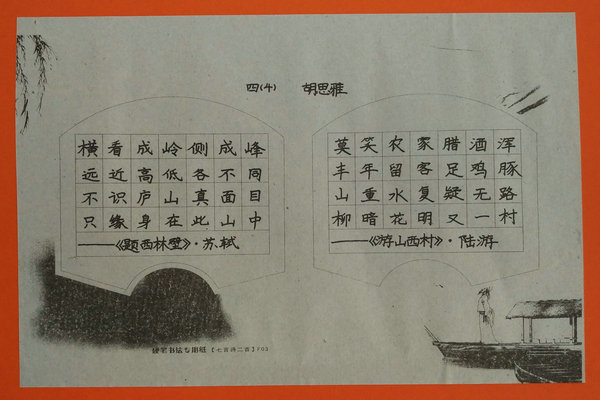 四(4) 胡思雅
横看成岭侧成峰
远近高低各不同
不识庐山真面目
只缘身在此山中
——《题西林壁》·苏轼
莫笑农家腊酒浑
丰年留客足鸡豚
山重水复疑无路
柳暗花明又一村
——《游山西村》·陆游
硬笔书法专用纸 【七言诗二首】F03